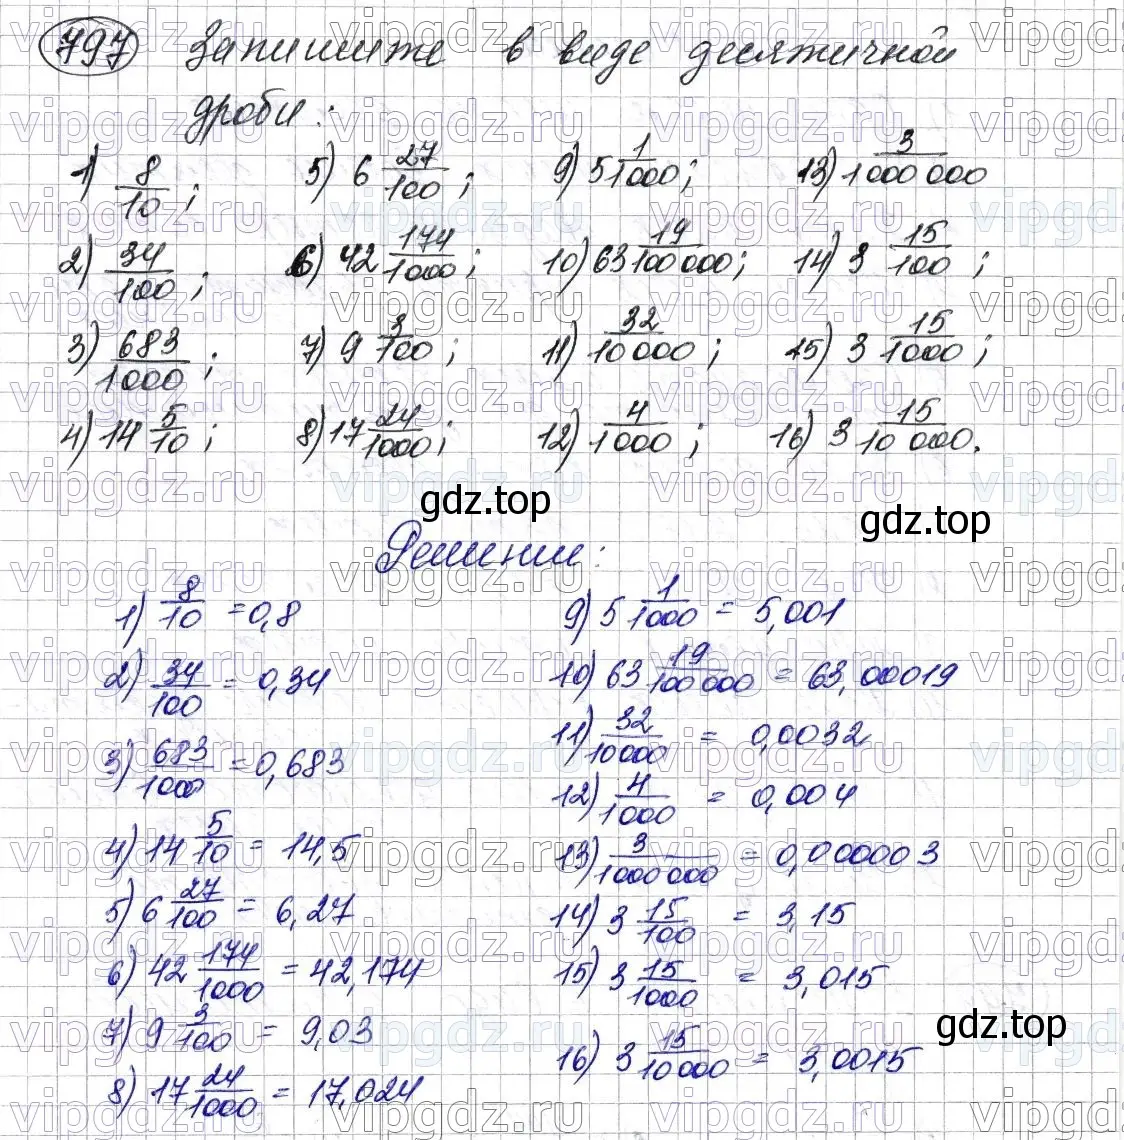 797 Запишите в виде десятичной
дроби:
1) 8/10; 5) 6 27/100; 9) 5 1/1000; 13) 3/1000 000
2) 34/100; 6) 42 174/1000; 10) 63 19/100 000; 14) 3 15/100;
3) 683/1000; 7) 9 3/100; 11) 32/10 000; 15) 3 15/1000;
4) 14 5/10; 8) 17 24/1000; 12) 4/1000; 16) 3 15/10 000.
gdz.top
gdz.top
Решение:
1) 8/10 = 0,8
2) 34/100 = 0,34
3) 683/1000 = 0,683
4) 14 5/10 = 14,5
5) 6 27/100 = 6,27
6) 42 174/1000 = 42,174
7) 9 3/100 = 9,03
8) 17 24/1000 = 17,024
9) 5 1/1000 = 5,001
10) 63 19/100 000 = 63,00019
11) 32/10000 = 0,0032
12) 4/1000 = 0,004
13) 3/1000 000 = 0,000003
14) 3 15/100 = 3,15
15) 3 15/1000 = 3,015
gdz.top
16) 3 15/10 000 = 3,0015
vipgdz.ru